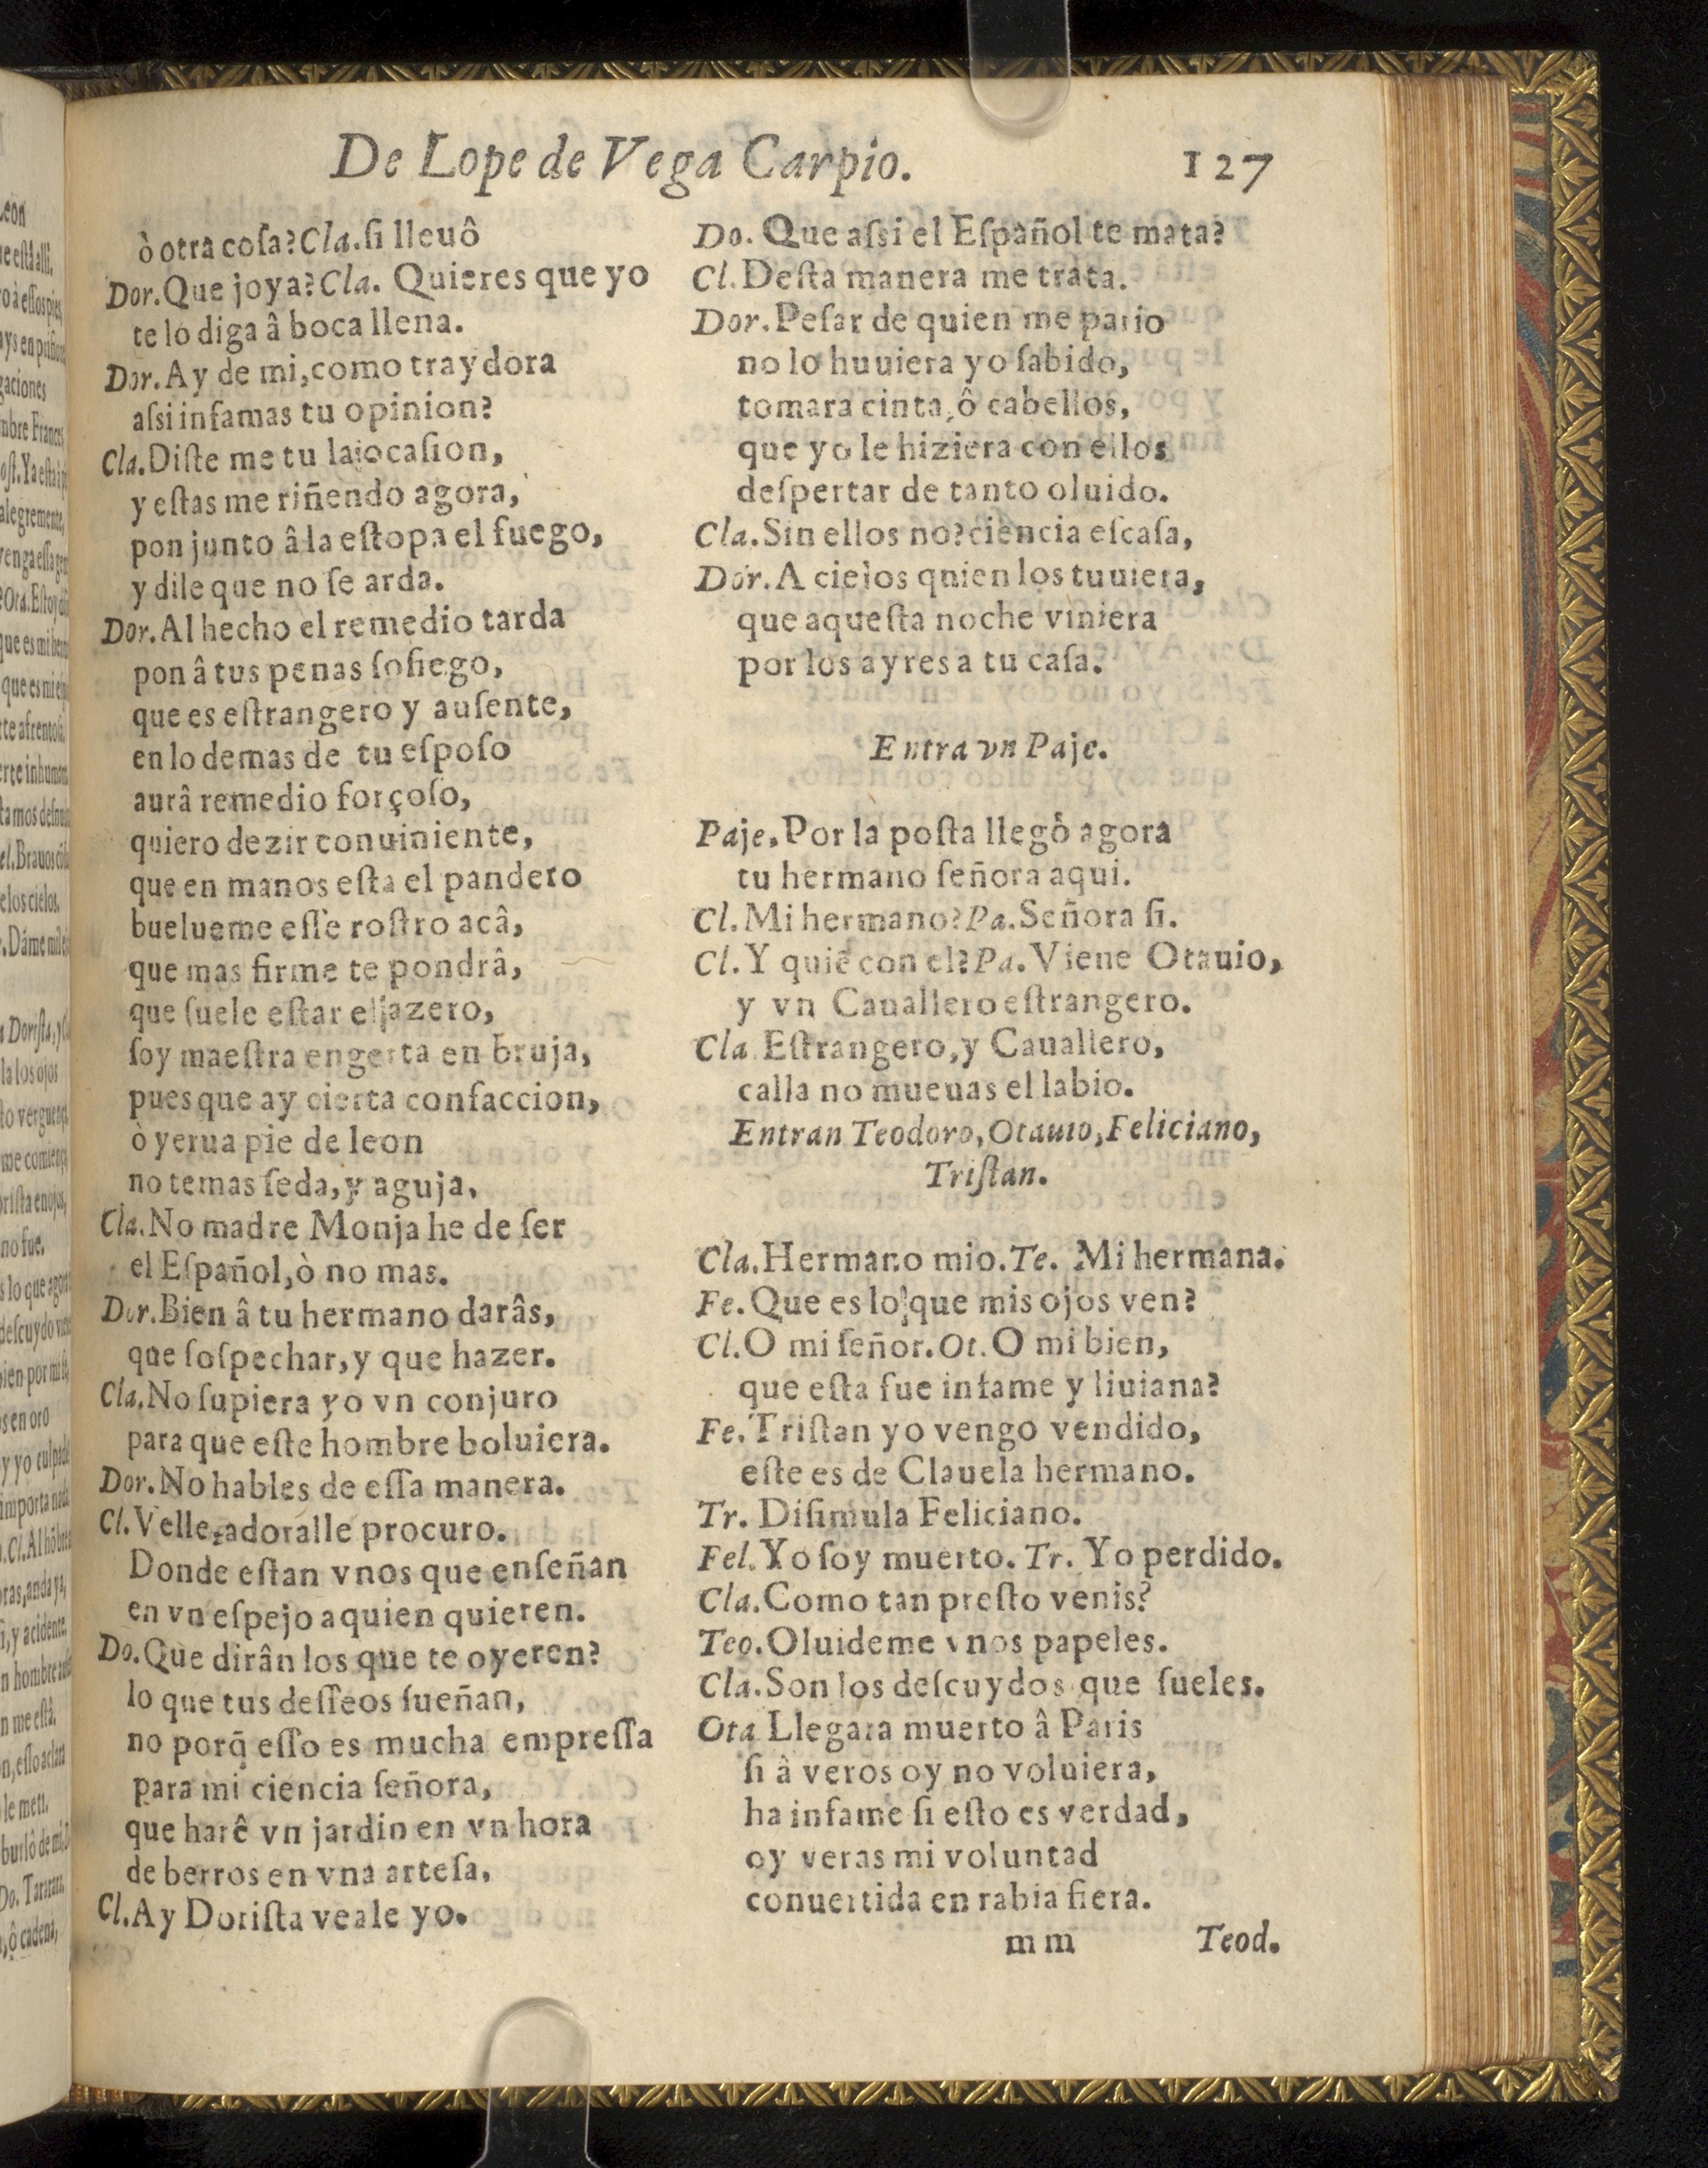 De Lope de Vega Carpio. 127
ò otra coſa? Cla. ſi lleuô
Dor. Que joya? Cla. Quieres que yo
te lo diga â boca llena.
Dor. Ay de mi, como traydora
aſsi infamas tu opinion?
Cla. Diſte me tu la ocaſion,
y eſtas me riñendo agora,
pon junto â la eſtopa el fuego,
y dile que no ſe arda.
Dor. Al hecho el remedio tarda
pon â tus penas ſoſiego,
que es eſtrangero y auſente,
en lo demas de tu eſpoſo
aurâ remedio forçoſo,
quiero dezir conuiniente,
que en manos eſta el pandero
buelueme eſſe roſtro acâ,
que mas firme te pondrâ,
que ſuele eſtar el azero,
ſoy maeſtra engerta en bruja,
pues que ay cierta confaccion,
ò yerua pie de leon
no temas ſeda, y aguja,
Cla. No madre Monja he de ſer
el Eſpañol, ò no mas.
Dor. Bien â tu hermano darâs,
que ſoſpechar, y que hazer.
Cla. No ſupiera yo vn conjuro
para que eſte hombre boluiera.
Dor. No hables de eſſa manera.
Cl. Velle, adoralle procuro.
Donde eſtan vnos que enſeñan
en vn eſpejo aquien quieren.
Do. Que dirân los que te oyeren?
lo que tus deſſeos ſueñan,
no porq̃ eſſo es mucha empreſſa
para mi ciencia ſeñora,
que harê vn jardin en vn hora
de berros en vna arteſa,
Cl. Ay Doriſta veale yo.
Do. Que aſsi el Eſpañol te mata?
Cl. Deſta manera me trata.
Dor. Peſar de quien me pario
no lo huuiera yo ſabido,
tomara cinta, ô cabellos,
que yo le hiziera con ellos
deſpertar de tanto oluido.
Cla. Sin ellos no? ciencia eſcaſa,
Dor. A cielos qnien los tuuiera,
que aqueſta noche viniera
por los ayres a tu caſa.
Entra vn Paje.
Paje. Por la poſta llegò agora
tu hermano ſeñora aqui.
Cl. Mi hermano? Pa. Señora ſi.
Cl. Y quiẽ con el? Pa. Viene Otauio,
y vn Cauallero eſtrangero.
Cla Eſtrangero, y Cauallero,
calla no mueuas el labio.
Entran Teodoro, Otauio, Feliciano,
Triſtan.
Cla. Hermano mio. Te. Mi hermana.
Fe. Que es lo que mis ojos ven?
Cl. O mi ſeñor. Ot. O mi bien,
que eſta fue infame y liuiana?
Fe. Triſtan yo vengo vendido,
eſte es de Clauela hermano.
Tr. Diſimula Feliciano.
Fel. Yo ſoy muerto. Tr. Yo perdido.
Cla. Como tan preſto venis?
Teo. Oluideme vnos papeles.
Cla. Son los deſcuydos que ſueles.
Ota Llegara muerto â Paris
ſi â veros oy no voluiera,
ha infame ſi eſto es verdad,
oy veras mi voluntad
conuertida en rabia fiera.
mm Teod.